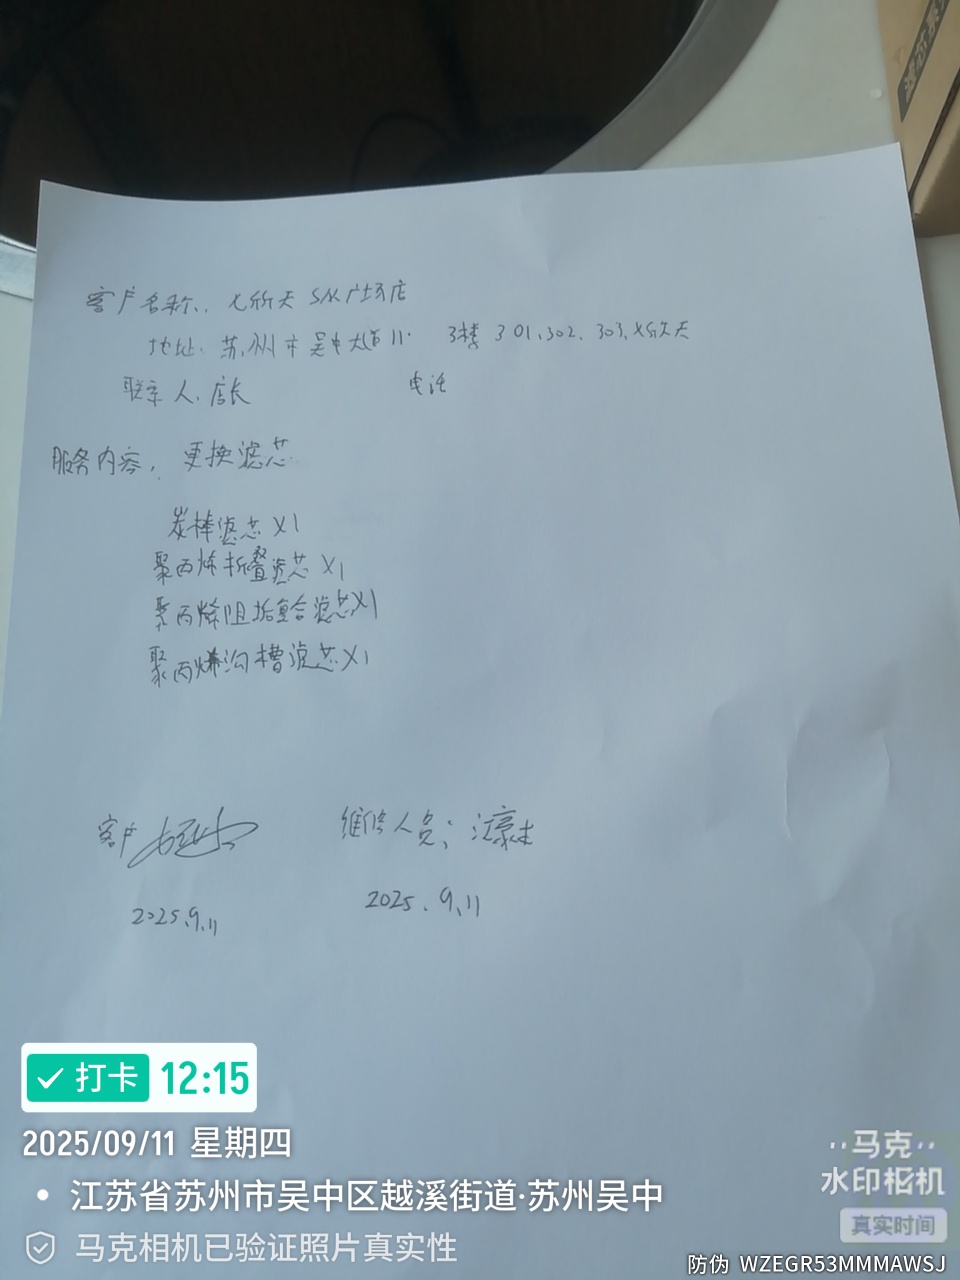 滤芯系列
客户名称: 七欣天 SM广场店
地址: 苏州市吴中大道11. 3楼 301、302、303、七欣天
联系人: 店长 电话
服务内容: 更换滤芯
炭棒滤芯 X1
聚丙烯折叠滤芯 X1
聚丙烯阻垢复合滤芯 X1
聚丙烯沟槽滤芯 X1
客户
维修人员:
2025.9.11 2025.9.11
打卡 12:15
2025/09/11 星期四
江苏省苏州市吴中区越溪街道·苏州吴中
马克相机已验证照片真实性
马克
水印相机
真实时间
防伪 WZEGR53MMMAWSJ